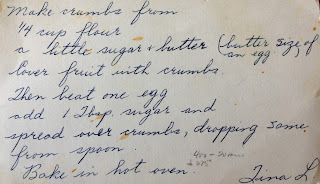 Make crumbs from
1/4 cup flour
a little sugar & butter (butter size of
an egg)
Cover fruit with crumbs.
Then beat one egg
add 1 Tbsp. sugar and
spread over crumbs, dropping same
from spoon.
Bake in hot oven.
Tina L